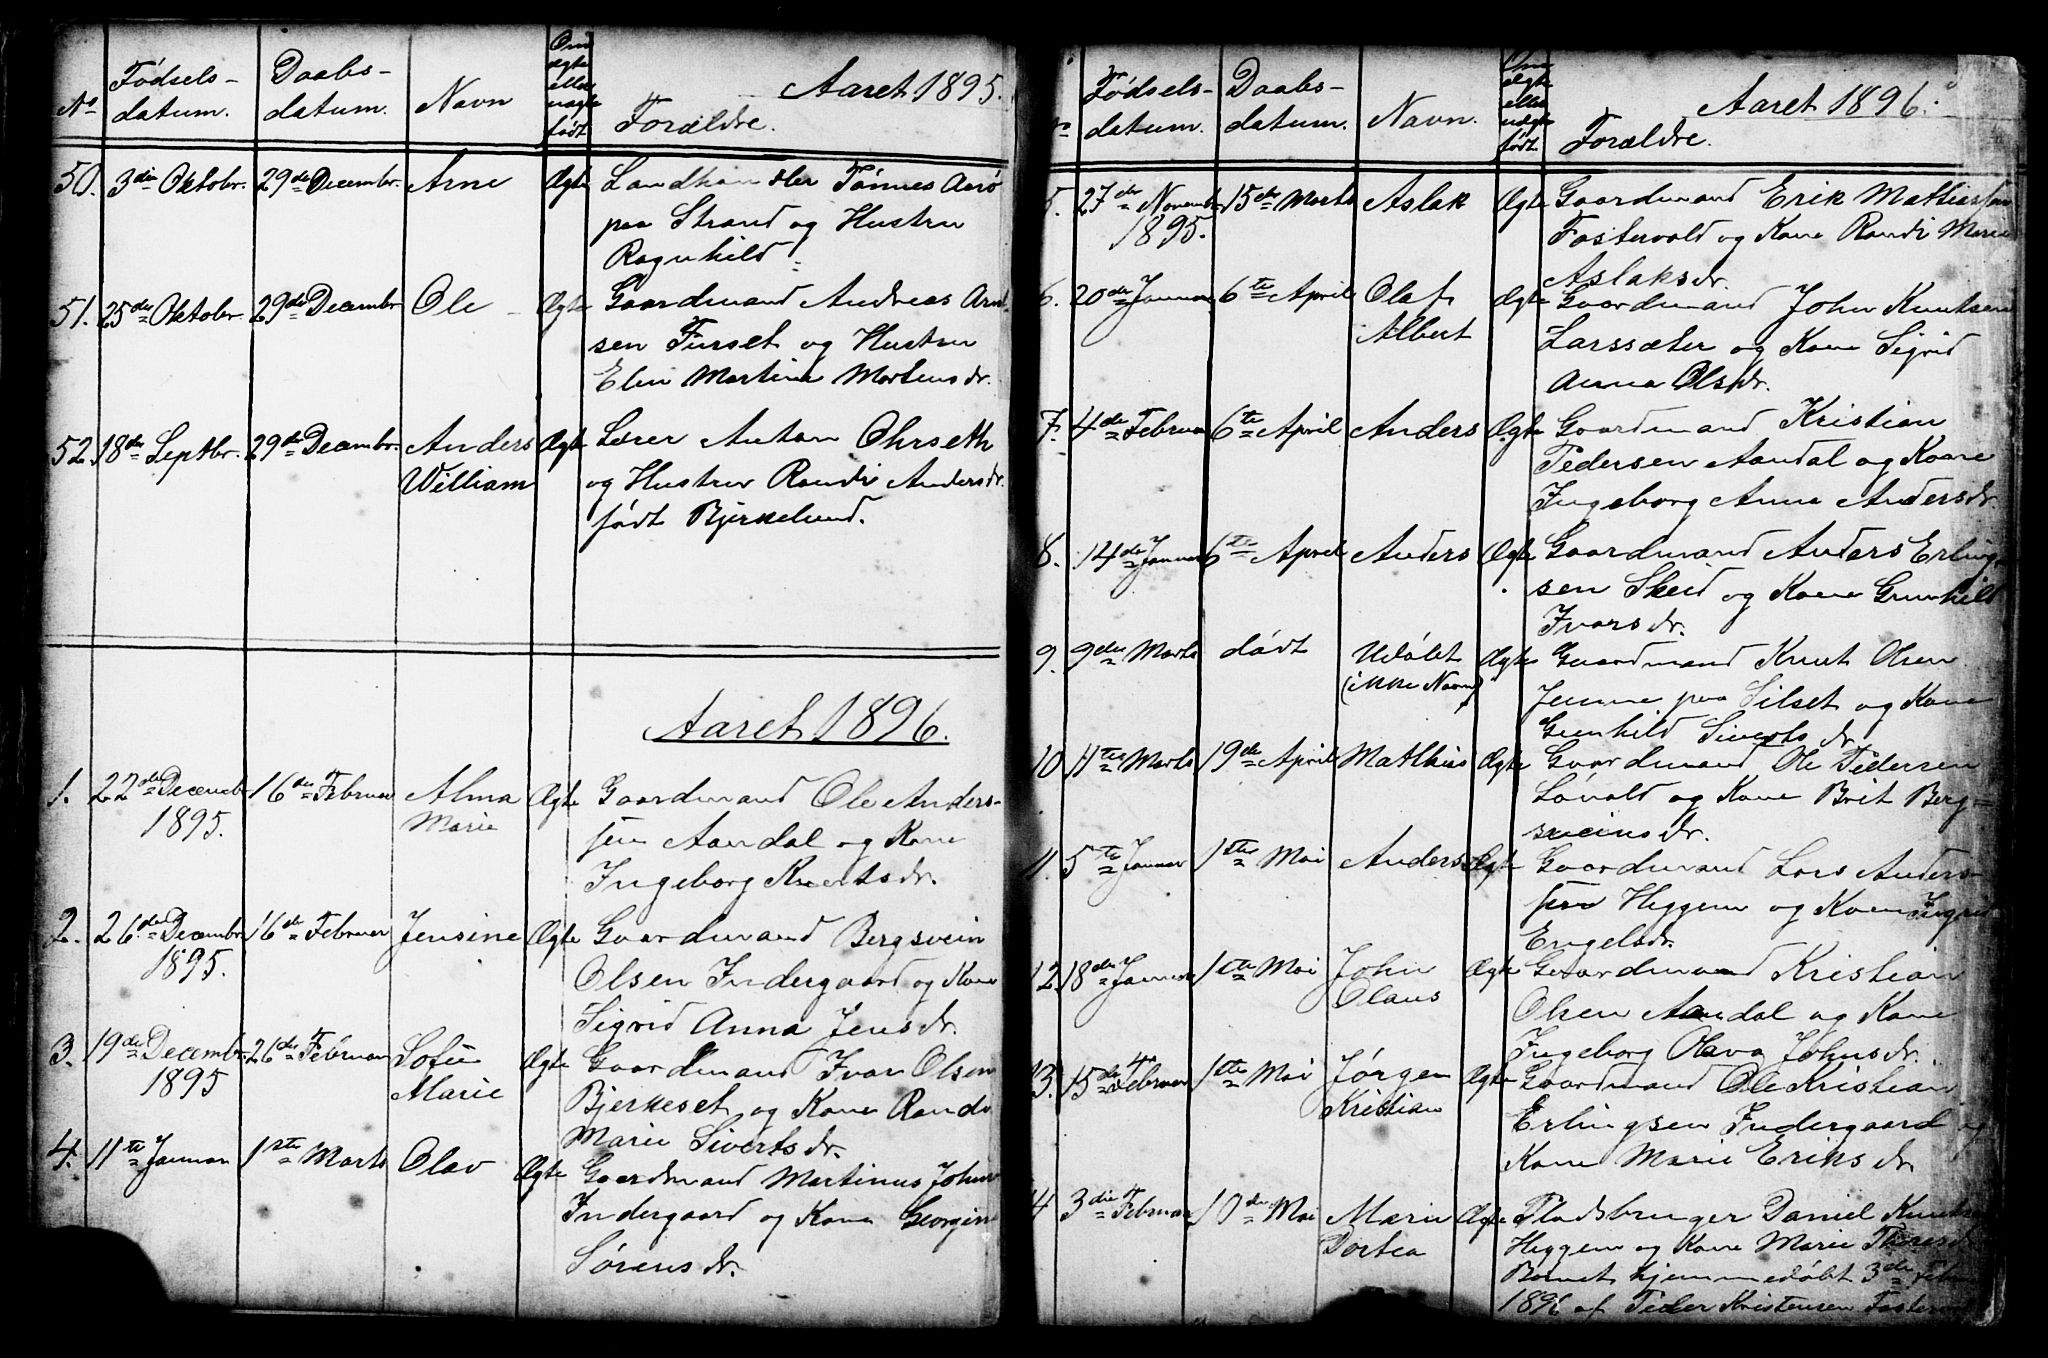 Aaret 1895.
No Fødsels-datum. Daabs-datum. Navn Om ægte eller uægte født Forældre.
50. 3die Oktobr. 29de Decembr. Arne Ægte Landhandler Tønnes Aarø
paa Strand og Hustru
Ragnhild
51. 25de Oktobr. 29de Decembr Ole Ægte Gaardmand Andreas Arnt
sen Furset og Hustru
Elen Martina Mortensdr.
52. 18de Septbr. 29de Decembr. Anders Ægte Lærer Anton Ohrseth
William og Hustru Randi Andersdr.
født Bjerkelund.
Aaret 1896.
1. 22de Decembr 16de Februar Alma Ægte Gaardmand Ole Anders-
1895. Marie sen Aandal og Kone
Ingeborg Knutsdr.
2. 26de Decembr 16de Februar Jensine Ægte Gaardmand Bergsvein
1895. Olsen Indergaard og Kone
Sigrid Anna Jensdr.
3. 19de Decembr. 26de Februar Sofie Ægte Gaardmand Ivar Olsen
1895 Marie Bjerkeset og Kone Randi
Marie Sivertsdr.
4. 11te Januar 1ste Marts Olav Ægte Gaardmand Martinus Johns
Indergaard og Kone Georgine
Sørensdr.
Aaret 1896.
No Fødsels-datum. Daabs-datum. Navn. Om ægte eller uægte født. Forældre.
5. 27de Novembr 15de Marts Aslak Ægte Gaardmand Erik Mathias
1895. Fostervold og Kone Randi Marie
Aslaksdr.
6. 20de Januar 6te April Olaf Ægte Gaardmand John Knutsen
Albert Larssæter og Kone Sigrid
Anna Olsdr.
7. 4de Februar 6te April Anders Ægte Gaardmand Kristian
Pedersen Aandal og Kone
Ingeborg Anna Andersdr.
8. 14de Januar 6te April Anders Ægte Gaardmand Anders Erling-
sen Skeid og Kone Gunhild
Ivarsdr.
9. 9de Marts dødt Udøbt Ægte Gaardmand Knut Olsen
(ikke Navn) Jenme paa Silset og Kone
Gunhild Sivertsdr.
10 11te Marts 19de April Mathias Ægte Gaardmand Ole Pedersen
Løvold og Kone Brit Berg-
sveinsdr.
11. 5te Januar 1ste Mai Anders Ægte Gaardmand Lars Anders-
sen Heggem og Kone Sigrid
Engelsdr.
12. 18de Januar 1ste Mai John Ægte Gaardmand Kristian
Olaus Olsen Aandal og Kone
Ingeborg Olava Johnsdr.
13. 15de Februar 1ste Mai Jørgen Ægte Gaardmand Ole Kristian
Kristian Erlingsen Indergaard og
Kone Marie Eriksdr.
14 3die Februar 10de Mai Marie Ægte Pladsbruger Daniel Knuts
Dortea Heggem og Kone Marie Thoresdr.
Barnet hjemmedøbt 3de Febr
1896 af Peder Kristensen Fostervold